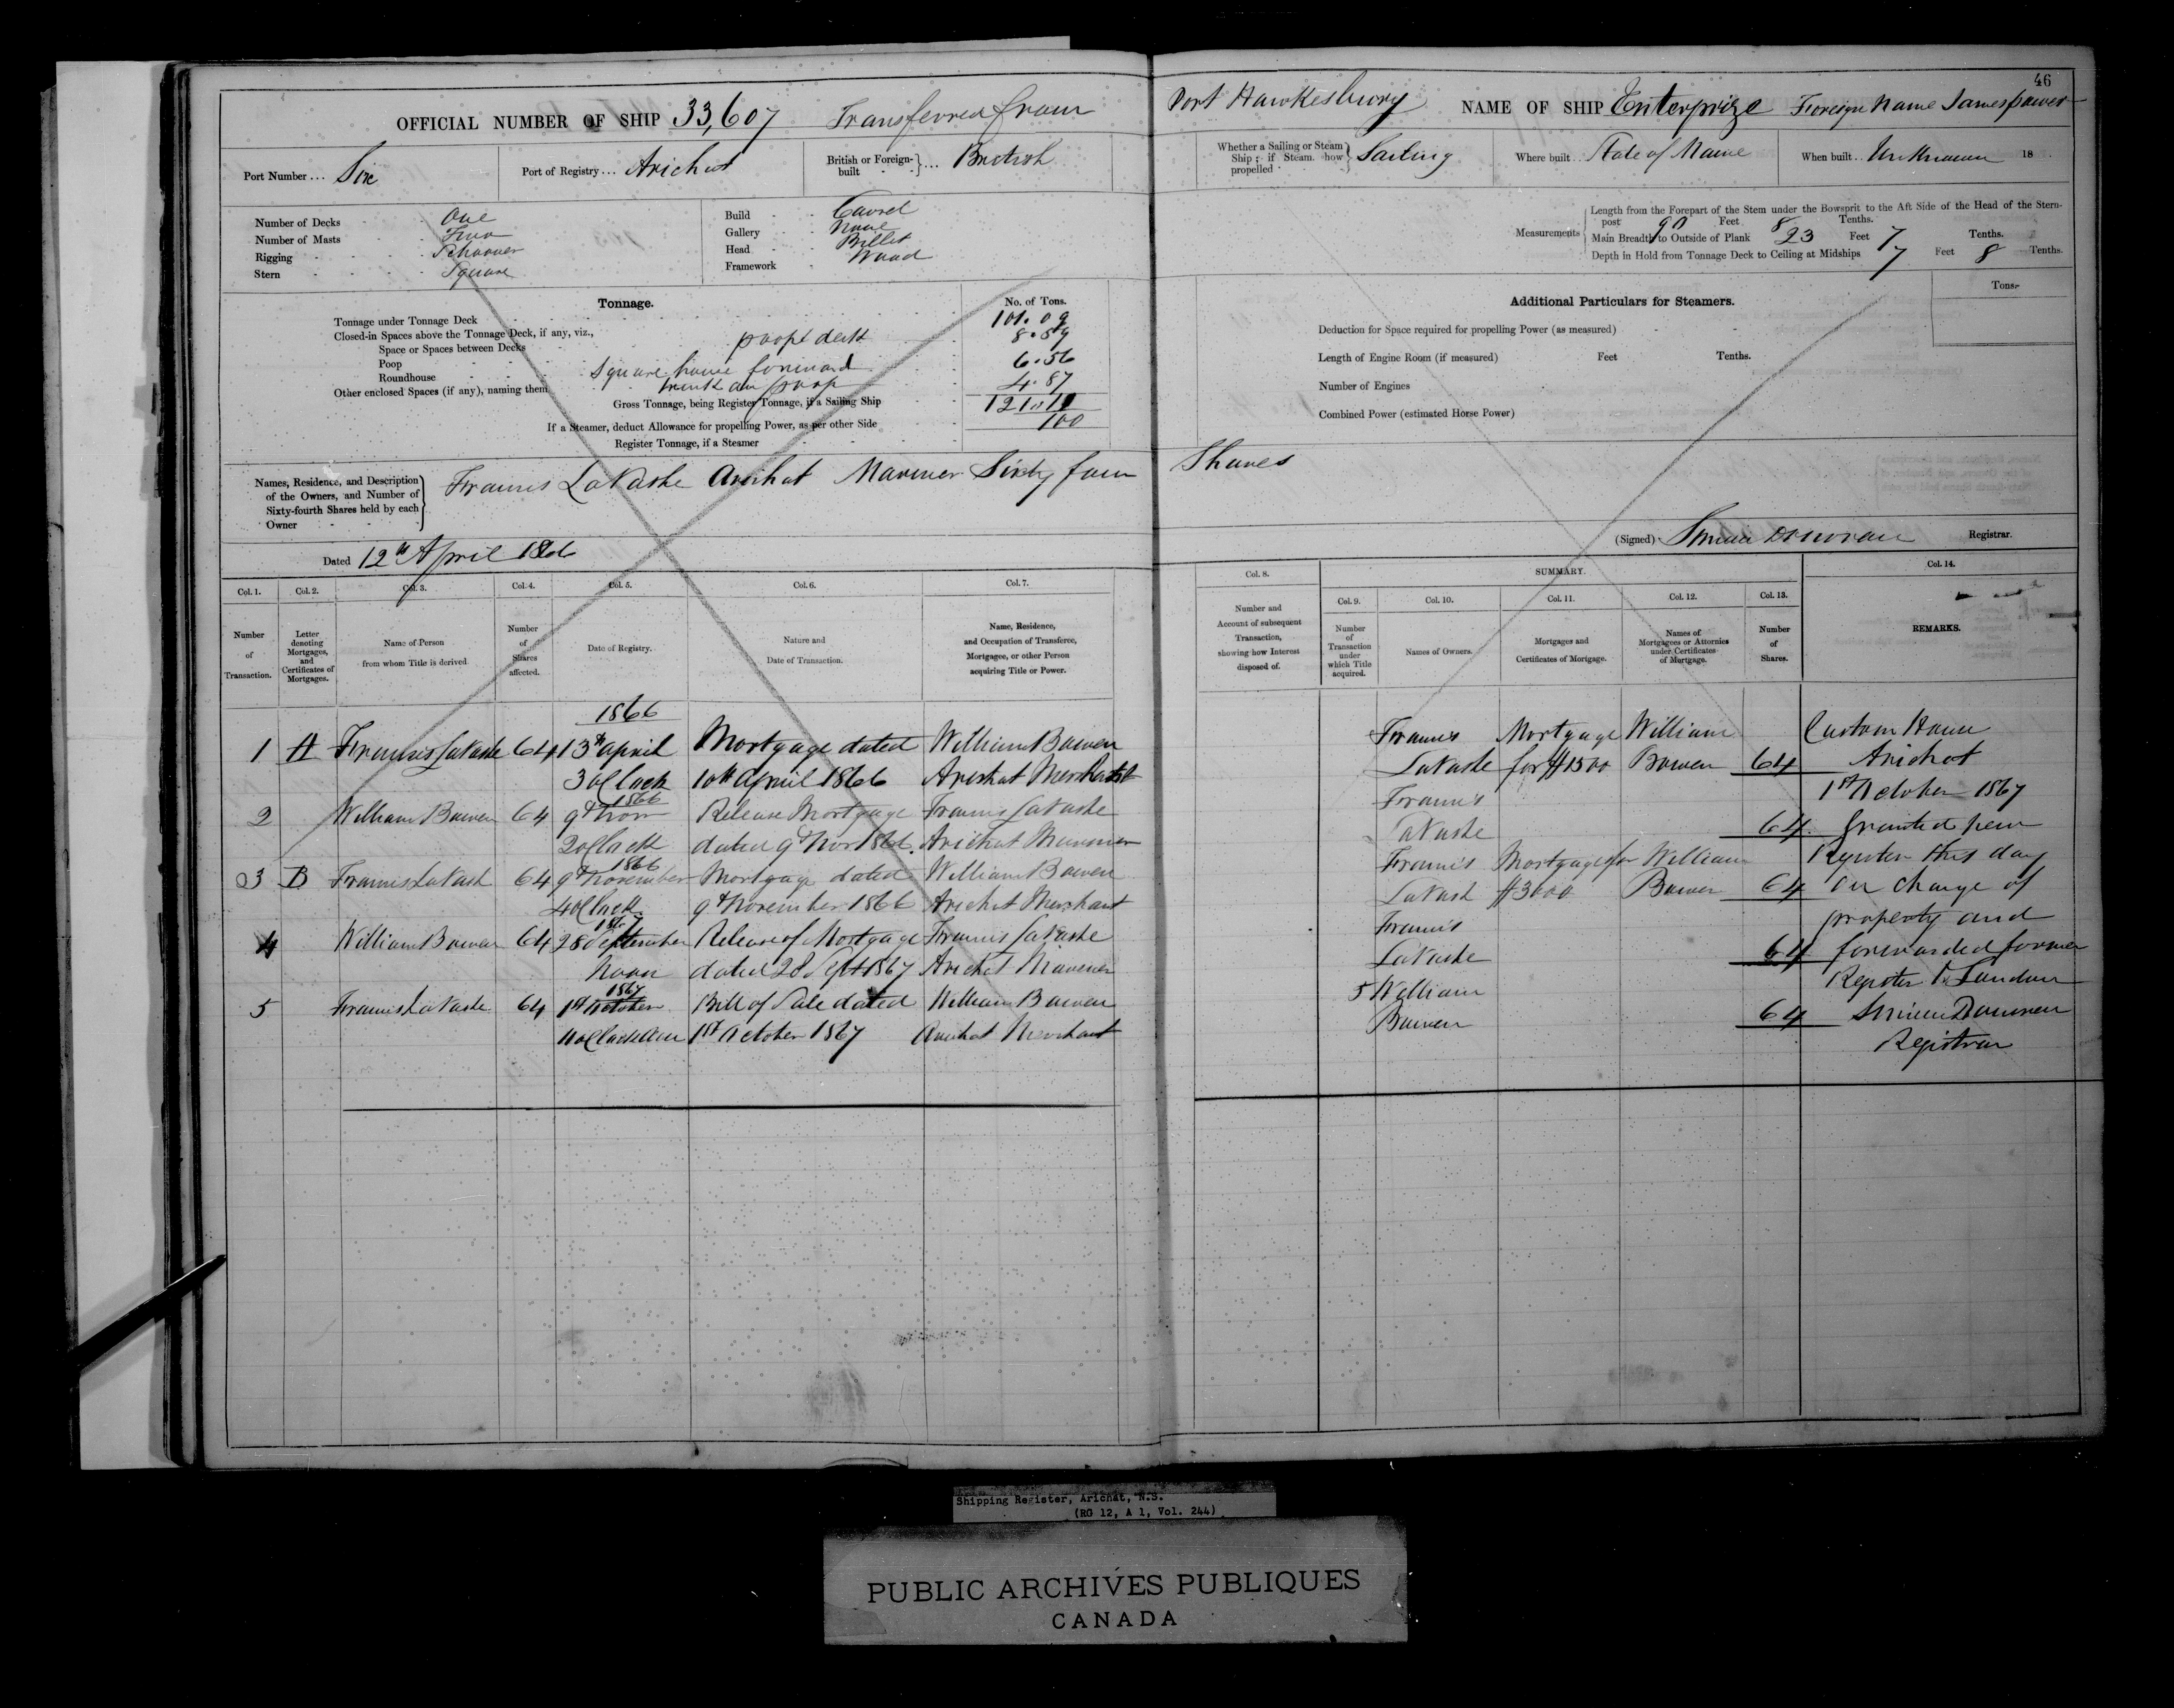 46
OFFICIAL NUMBER OF SHIP 33,607 Transferred from Port Hawkesbury NAME OF SHIP Enterprize Foreign Name James
Port Number ... Six
Port of Registry ... Arichat
British or Foreign-built } ... British
Whether a Sailing or Steam Ship; if Steam how propelled } Sailing
Where built .. State of Maine
When built .. Unknown 18
Number of Decks One
Number of Masts Two
Rigging Schooner
Stern Square
Build Carvel
Gallery None
Head Billet
Framework Wood
Measurements
Length from the Forepart of the Stem under the Bowsprit to the Aft Side of the Head of the Stern-
post 90 Feet 8 Tenths.
Main Breadth to Outside of Plank 23 Feet 7 Tenths.
Depth in Hold from Tonnage Deck to Ceiling at Midships 7 Feet 8 Tenths.
Tonnage. No. of Tons.
Tonnage under Tonnage Deck 101.09
Closed-in Spaces above the Tonnage Deck, if any, viz., 8.59
Space or Spaces between Decks poope deck
Poop 6.56
Roundhouse Square house forward
Other enclosed Spaces (if any), naming them trunk on poop 4.87
Gross Tonnage, being Register Tonnage, if a Sailing Ship 121.11
If a Steamer, deduct Allowance for propelling Power, as per other Side 100
Register Tonnage, if a Steamer
Additional Particulars for Steamers.
Tons.
Deduction for Space required for propelling Power (as measured)
Length of Engine Room (if measured) Feet Tenths.
Number of Engines
Combined Power (estimated Horse Power)
Names, Residence, and Description
of the Owners, and Number of
Sixty-fourth Shares held by each
Owner
Francis LaVashe Arichat Mariner Sixty four Shares
Dated 12th April 1866
(Signed) Registrar.
Col. 1. Col. 2. Col. 3. Col. 4. Col. 5. Col. 6. Col. 7.
Number of Transaction.
Letter denoting Mortgages, and Certificates of Mortgages.
Name of Person from whom Title is derived
Number of Shares affected.
Date of Registry.
Nature and Date of Transaction.
Name, Residence, and Occupation of Transferee, Mortgagee, or other Person acquiring Title or Power.
1866
1 A Francis LaVashe 64 13th April Mortgage dated William Bowen
3 oClock 10th April 1866 Arichat Merchant
1866
2 William Bowen 64 9th Nov Release Mortgage Francis LaVashe
2 oClock dated 9th Nov 1866. Arichat Mariner
1866
3 B Francis LaVash 64 9th November Mortgage dated William Bowen
4 oClock 9th November 1866 Arichat Merchant
1867
4 William Bowen 64 28 September Release of Mortgage Francis LaVashe
Noon dated 28 Sept 1867 Arichat Mariner
1867
5 Francis LaVashe 64 1st October Bill of Sale dated William Bowen
11 oClock AM 1st October 1867 Arichat Merchant
Col. 8. SUMMARY. Col. 14.
Col. 9. Col. 10. Col. 11. Col. 12. Col. 13.
Number and Account of subsequent Transaction, showing how Interest disposed of.
Number of Transaction under which Title acquired.
Names of Owners.
Mortgages and Certificates of Mortgage.
Names of Mortgagees or Attornies under Certificates of Mortgage.
Number of Shares.
REMARKS.
Francis Mortgage William
LaVashe for $1500 Bowen 64
Francis
LaVashe 64
Francis Mortgage for William
LaVash $3600 Bowen 64
Francis
LaVashe 64
5 William
Bowen 64
Custom House
Arichat
1st October 1867
Granted new
Register this day
on change of
property and
forwarded former
Register to London
Registrar
Shipping Register, Arichat, N.S.
(RG 12, A 1, Vol. 244)
PUBLIC ARCHIVES PUBLIQUES
CANADA